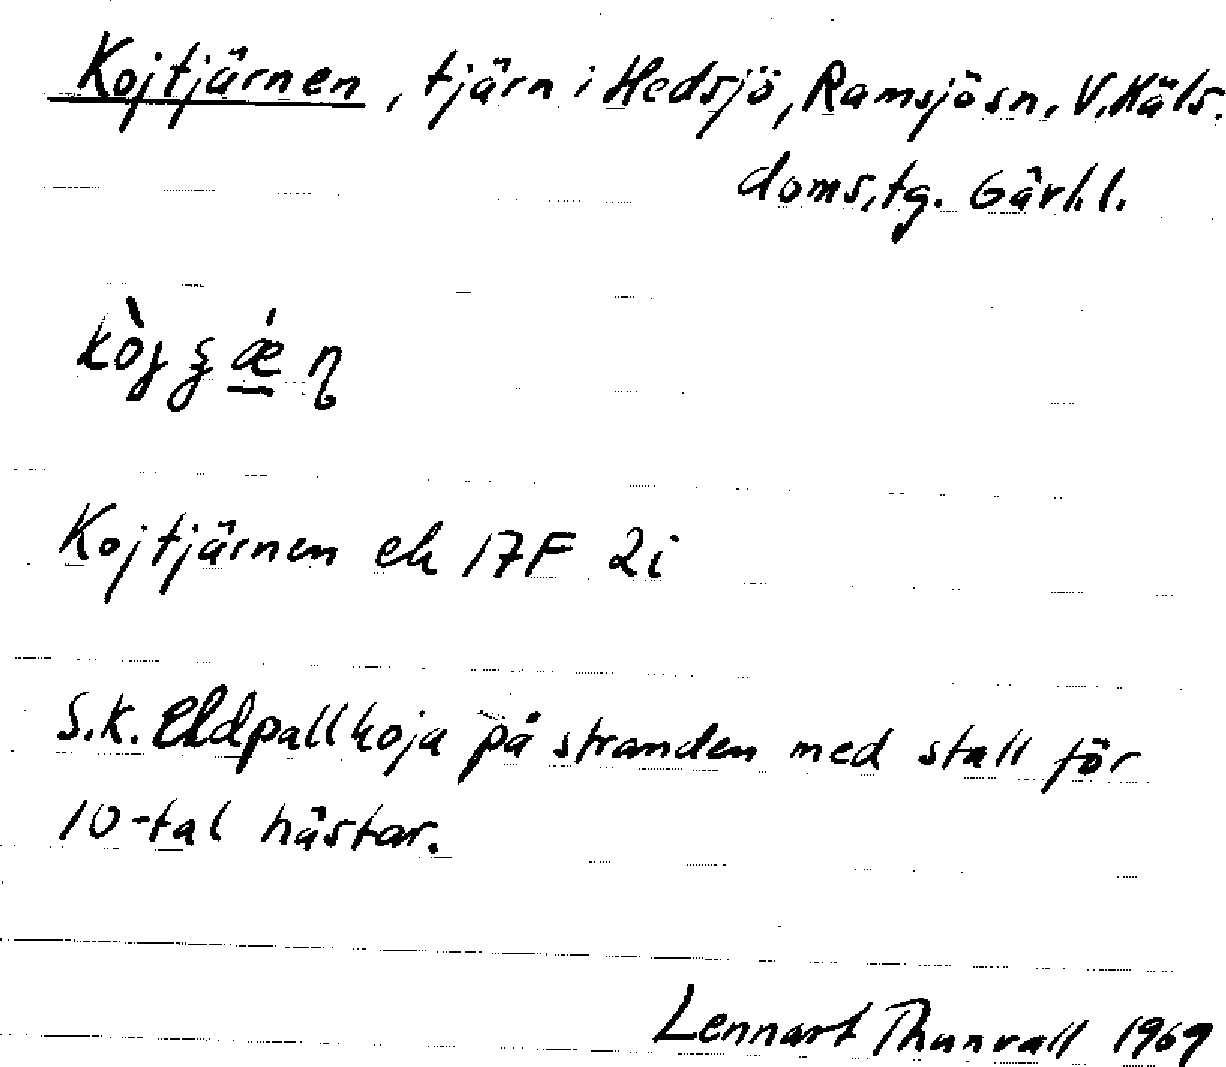 Kojtjärnen, tjärn i Hedsjö, Ramsjö sn, V. Häls.
doms.tg. Gävl.l.
Kojtjärnen ek 17F 2i
S.k. Eldpallkoja på stranden med stall för
10-tal hästar.
Lennart Thunvall 1969